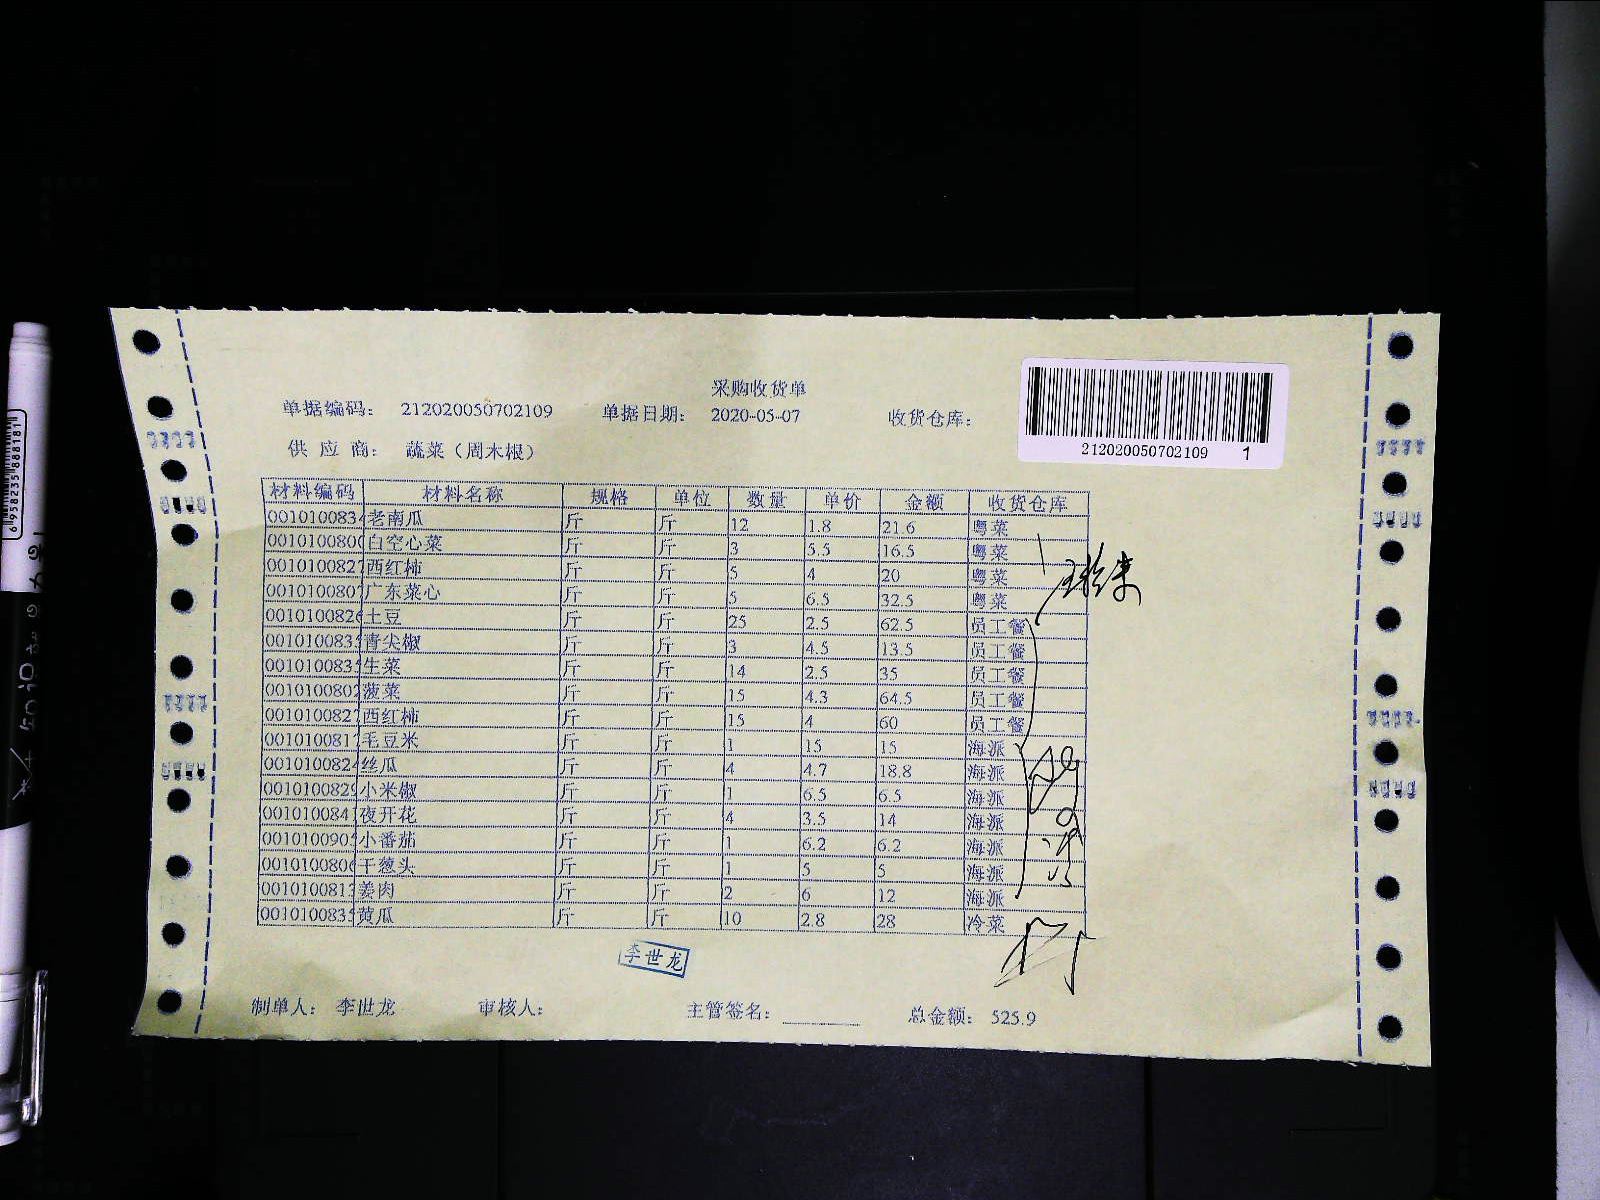 采购收货单
单据编码： 212020050702109 单据日期： 2020-05-07 收货仓库：
212020050702109 1
供 应 商： 蔬菜（周木根）
材料编码 材料名称 规格 单位 数量 单价 金额 收货仓库
0010100834 老南瓜 斤 斤 12 1.8 21.6 粤菜
0010100800 白空心菜 斤 斤 3 5.5 16.5 粤菜
0010100827 西红柿 斤 斤 5 4 20 粤菜
0010100807 广东菜心 斤 斤 5 6.5 32.5 粤菜
0010100826 土豆 斤 斤 25 2.5 62.5 员工餐
001010083 青尖椒 斤 斤 3 4.5 13.5 员工餐
001010083 生菜 斤 斤 14 2.5 35 员工餐
0010100802 菠菜 斤 斤 15 4.3 64.5 员工餐
0010100827 西红柿 斤 斤 15 4 60 员工餐
001010081 毛豆米 斤 斤 1 15 15 海派
0010100824 丝瓜 斤 斤 4 4.7 18.8 海派
0010100829 小米椒 斤 斤 1 6.5 6.5 海派
001010084 夜开花 斤 斤 4 3.5 14 海派
001010090 小番茄 斤 斤 1 6.2 6.2 海派
0010100806 干葱头 斤 斤 1 5 5 海派
001010081 姜肉 斤 斤 2 6 12 海派
001010083 黄瓜 斤 斤 10 2.8 28 冷菜
李世龙
制单人： 李世龙 审核人： 主管签名： 总金额： 525.9
6958235888181